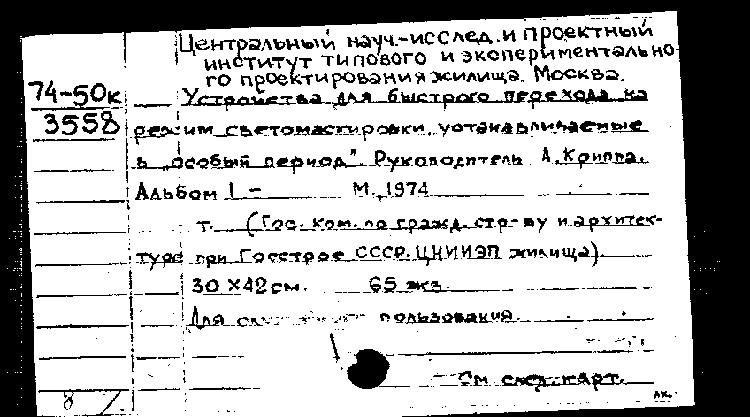 Центральный науч.-исслед. и проектный
институт типового и экспериментально-
го проектирования жилища. Москва.
74-50к
3558
Устройства для быстрого перехода на
режим светомаскировки, устанавливаемые
в „особый период". Руководитель А. Криппа.
Альбом 1 - М., 1974
т. (Гос. ком. по гражд. стр-ву и архитек-
туре при Госстрое СССР. ЦНИИЭП жилища).
30 x 42 см. 65 экз.
Для пользования.
См. след. карт.
8